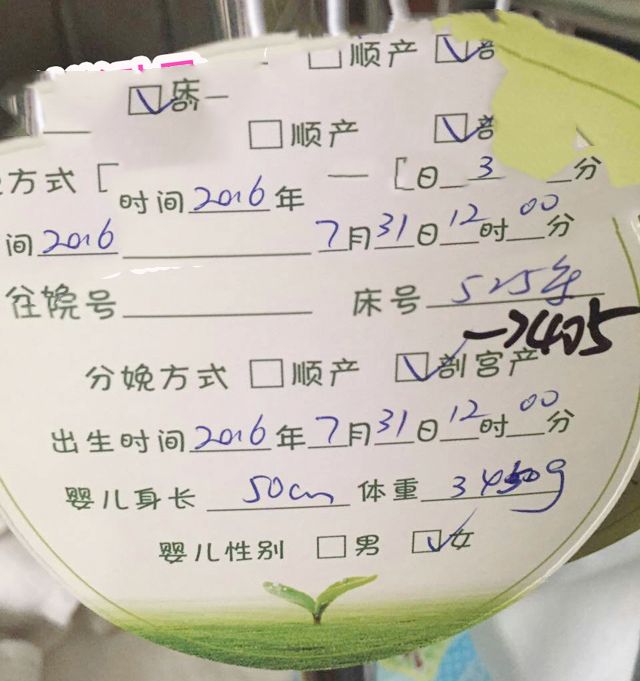 ☐顺产 ☑
☑床一
☐顺产 ☑
方式 [ 一 [日 3 分
时间2016年
间2016 7月31日12时00分
住院号 床号 525
→405
分娩方式 ☐顺产 ☑剖宫产
出生时间2016年7月31日12时00分
婴儿身长 50cm 体重 3450g
婴儿性别 ☐男 ☑女